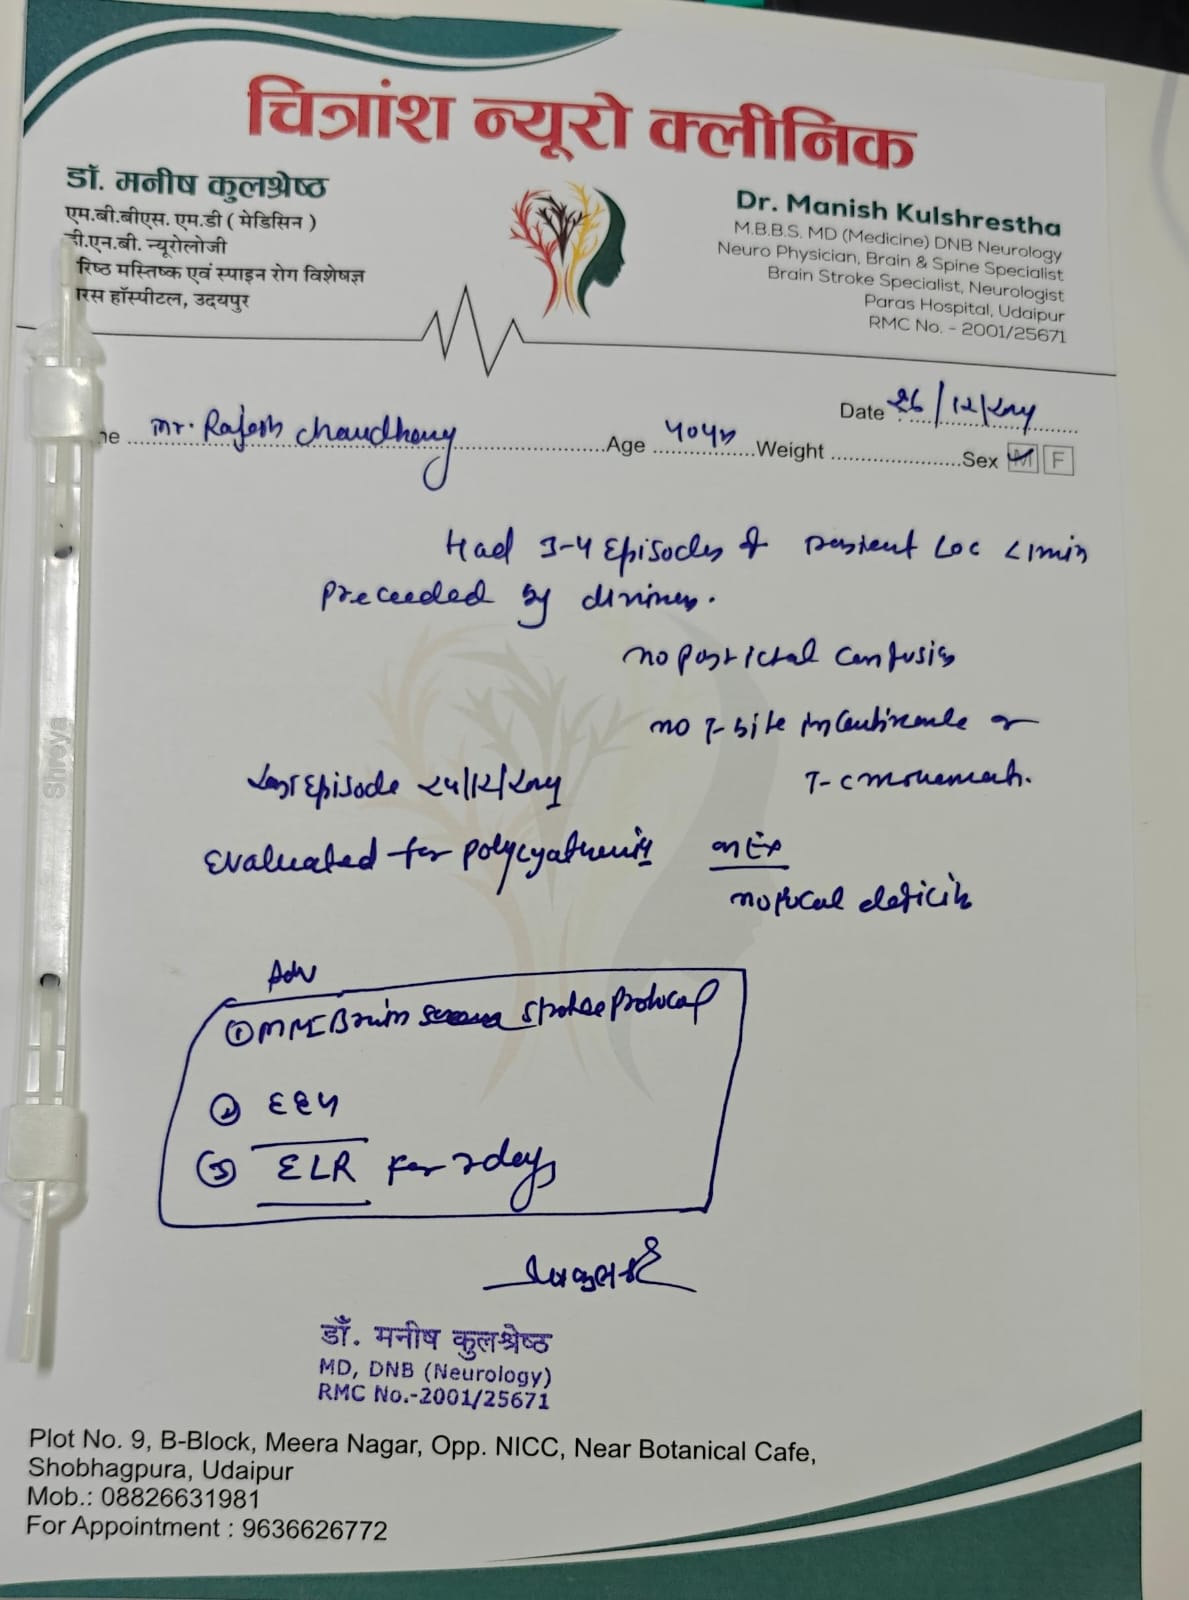 चित्रांश न्यूरो क्लीनिक
डॉ. मनीष कुलश्रेष्ठ
एम.बी.बीएस. एम.डी ( मेडिसिन )
डी.एन.बी. न्यूरोलोजी
रिष्ठ मस्तिष्क एवं स्पाइन रोग विशेषज्ञ
रस हॉस्पीटल, उदयपुर
Dr. Manish Kulshrestha
M.B.B.S. MD (Medicine) DNB Neurology
Neuro Physician, Brain & Spine Specialist
Brain Stroke Specialist, Neurologist
Paras Hospital, Udaipur
RMC No. - 2001/25671
Date 26/12/
Mr. Rajesh Chaudhary Age 40yr Weight Sex M F
Had 3-4 Episodes of LOC <1min
preceeded by
no post ictal confusion
no T-bite incontinence or
T-C movements.
Last Episode 24/12/
Evaluated for on Ex
no focal deficit
Adv
① MRI Brain stroke protocol
② EEG
③ ELR for days
डॉ. मनीष कुलश्रेष्ठ
MD, DNB (Neurology)
RMC No.-2001/25671
Plot No. 9, B-Block, Meera Nagar, Opp. NICC, Near Botanical Cafe,
Shobhagpura, Udaipur
Mob.: 08826631981
For Appointment : 9636626772
Shreya